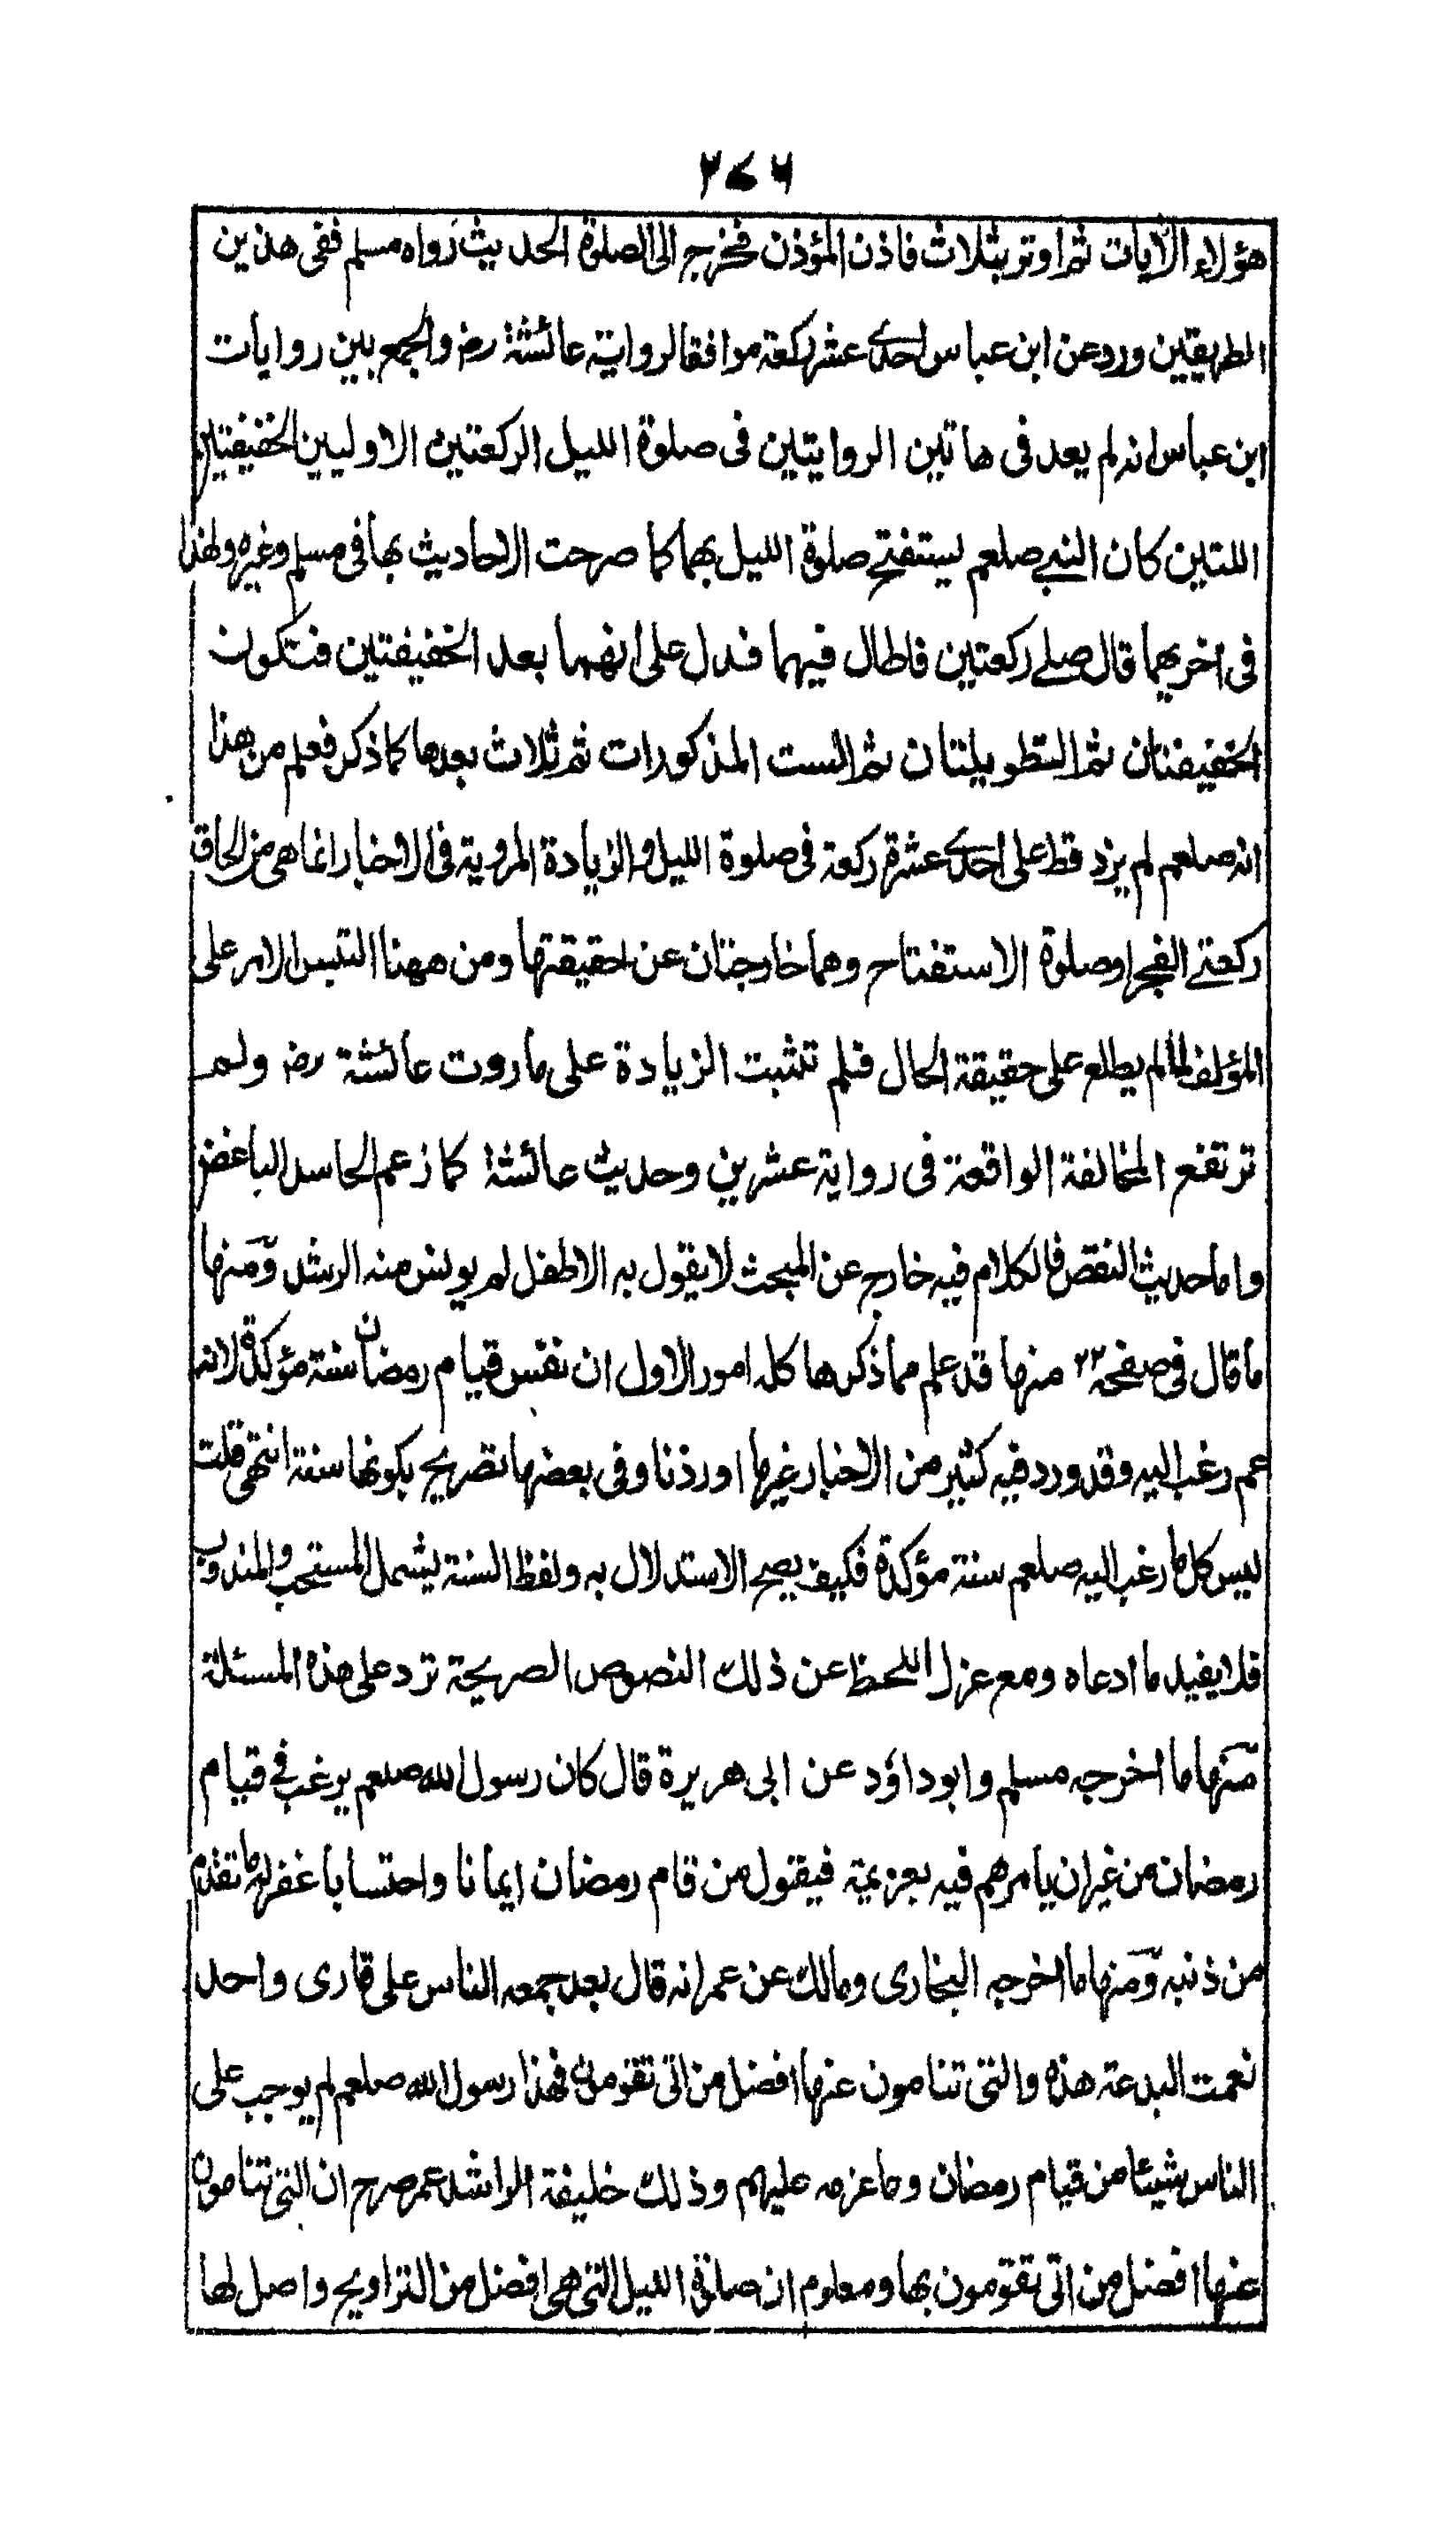 ٢٧٦
هؤلاء الآيات ثم اوتر بثلاث فاذن المؤذن فخرج الى الصلوة الحديث رواه مسلم ففى هذين
الطريقين ورد عن ابن عباس احدے عشر ركعة موافقا لرواية عائشة رضـ والجمع بين روايات
ابن عباس انه لم يعد فى هاتين الروايتين فى صلوة الليل الركعتين الاوليين الخفيفتين
اللتين كان النبے صلعم يستفتح صلوة الليل بهما كما صرحت الاحاديث بها فى مسلم وغيره ولهذا
فى اخريهما قال صلے ركعتين فاطال فيهما فدل على انهما بعد الخفيفتين فتكون
الخفيفتان ثم الطويلتان ثم الست المذكورات ثم ثلاث بعدها كما ذكر فعلم من هذا
انه صلعم لم يزد قط على احدے عشرة ركعة فى صلوة الليل والزيادة المروية فى الاخبار انما هى من الحاق
ركعتے الفجر او صلوة الاستفتاح وهما خارجتان عن حقيقتها ومن ههنا التبس الامر على
المؤلف لما لم يطلع على حقيقة الحال فلم تثبت الزيادة على ما روت عائشة رضـ ولم
ترتفع المخالفة الواقعة فى رواية عشرين وحديث عائشة كما زعم الحاسد الباغض
واما حديث النقص فالكلام فيه خارج عن المبحث لا يقول به الا طفل لم يونس منه الرشد ومنها
ما قال فى صفحه ٢٢ منها قد علم مما ذكرها كله امور الاول ان نفس قيام رمضان سنة مؤكدة لانه
عم رغب اليه وقد ورد فيه كثير من الاخبار غيرها اوردنا وفى بعضها تصريح بكونها سنة انتهى قلت
ليس كل ما رغب اليه صلعم سنة مؤكدة فكيف يصح الاستدلال به ولفظ السنة يشمل المستحب والمندوب
فلا يفيد ما ادعاه ومع عزل اللحظ عن ذلك النصوص الصريحة ترد على هذه المسئلة
منها ما اخرجه مسلم وابو داؤد عن ابى هريرة قال كان رسول الله صلعم يرغب فے قيام
رمضان من غير ان يامرهم فيه بعزيمة فيقول من قام رمضان ايمانا واحتسابا غفر له ما تقدم
من ذنبه ومنها ما اخرجه البخارى ومالك عن عمر انه قال بعد جمعه الناس على قارى واحد
نعمت البدعة هذه والتى تنامون عنها افضل من التى تقومون فهذا رسول الله صلعم لم يوجب على
الناس شيئا من قيام رمضان وما عزمه عليهم وذلك خليفة الراشد عمر صرح ان التى تنامون
عنها افضل من التى تقومون بها ومعلوم ان صلوة الليل التى هى افضل من التراويح واصل لها